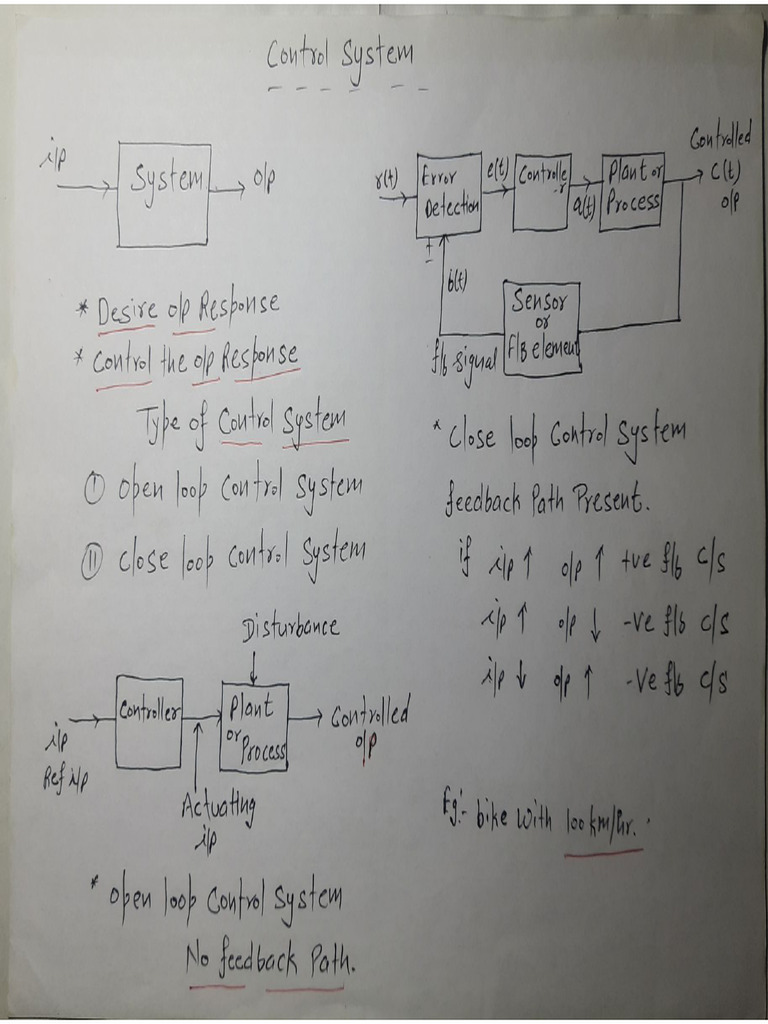 Control System
i/p
System
o/p
* Desire o/p Response
* Control the o/p Response
Type of Control System
I open loop Control System
II Close loop Control System
Disturbance
i/p
Ref i/p
Controller
Plant
or Process
Controlled
o/p
Actuating
i/p
* open loop Control System
No feedback Path.
r(t)
Error
Detection
±
e(t)
Controlle
-r
a(t)
Plant or
Process
Controlled
C(t)
o/p
b(t)
Sensor
or
F/B element
f/b signal
* Close loop Control System
feedback Path Present.
if i/p ↑ o/p ↑ +ve f/b C/S
i/p ↑ o/p ↓ -ve f/b C/S
i/p ↓ o/p ↑ -ve f/b C/S
Eg:- bike with 100 km/hr.